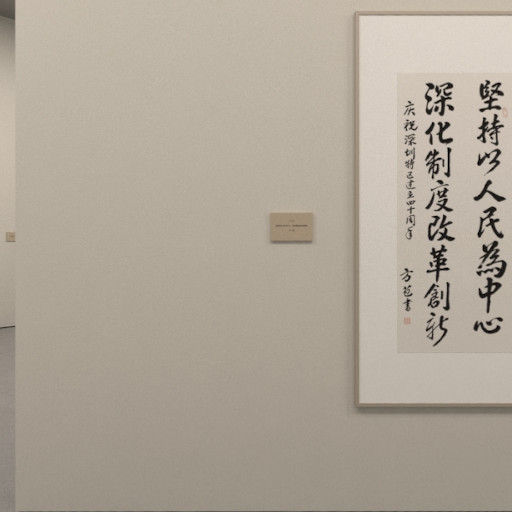 坚持以人民為中心
深化制度改革創新
庆祝深圳特区建立四十周年